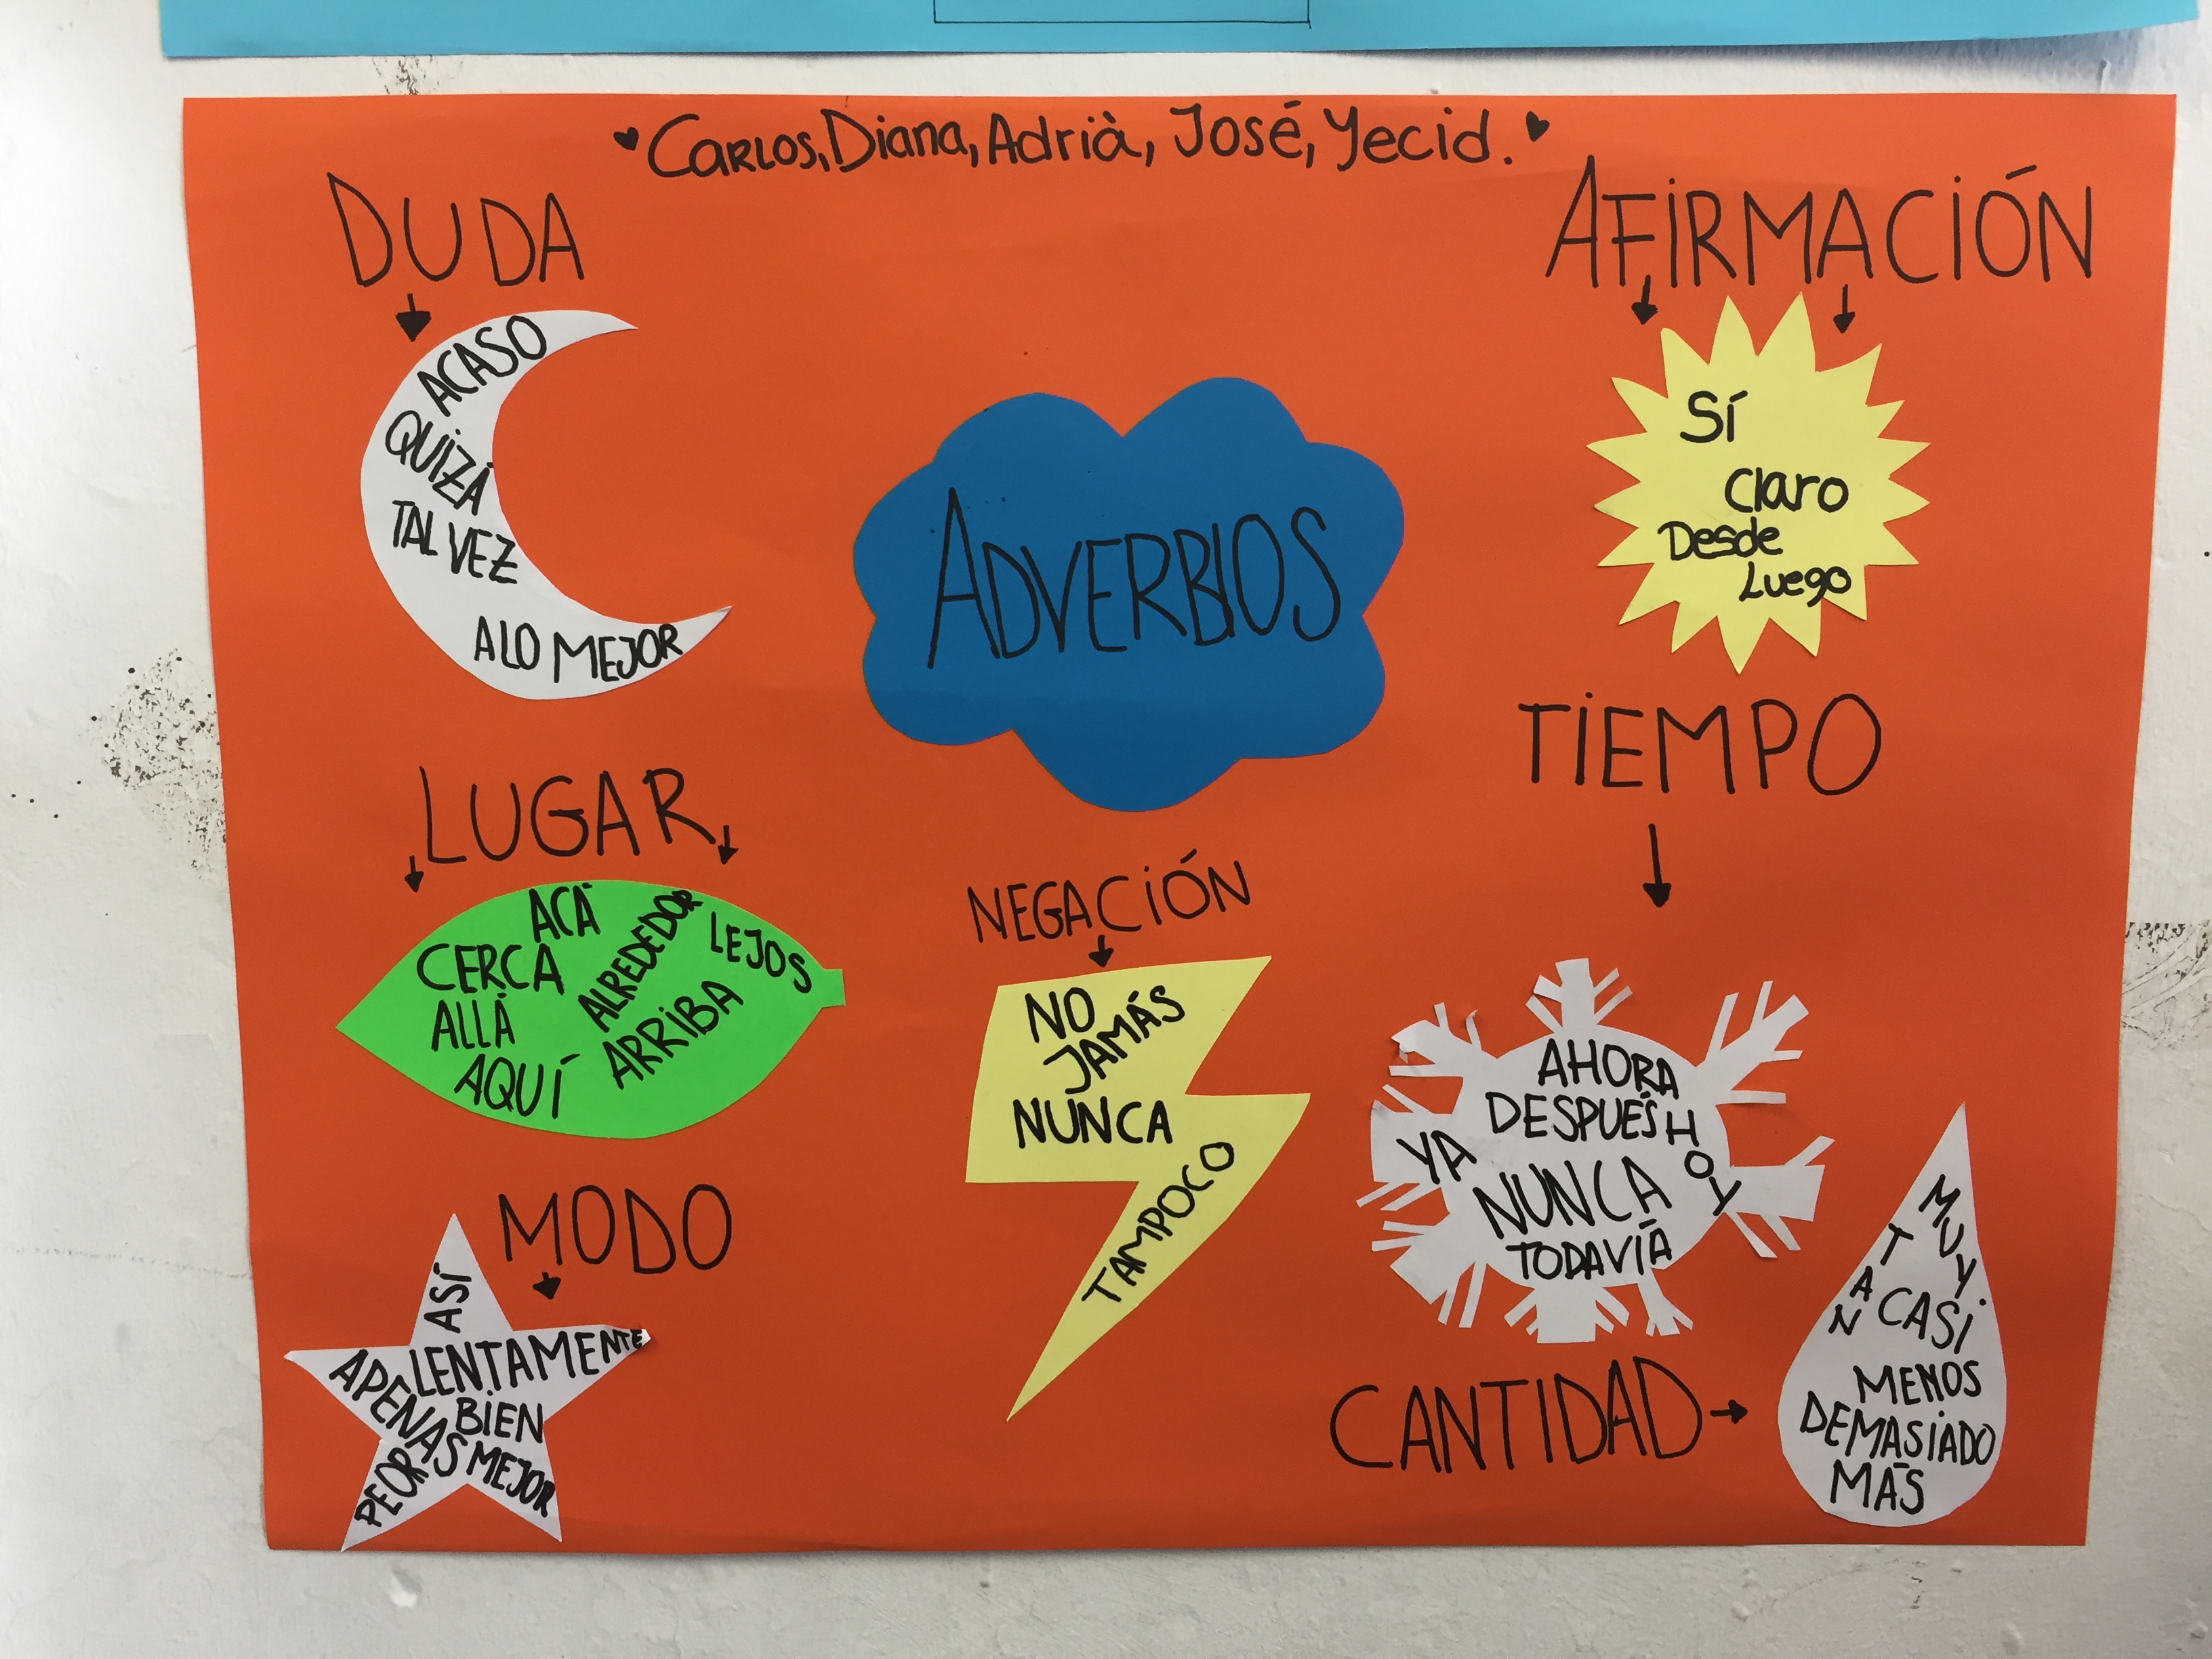 Carlos, Diana, Adrià, José, Yecid.
DUDA
ACASO
QUIZÁ
TAL VEZ
A LO MEJOR
AFIRMACIÓN
Sí
Claro
Desde
Luego
ADVERBIOS
LUGAR
ACÁ
CERCA
ALLÁ
AQUÍ
ALREDEDOR
ARRIBA
LEJOS
NEGACIÓN
NO
JAMÁS
NUNCA
TAMPOCO
TIEMPO
AHORA
DESPUÉS
HOY
YA
NUNCA
TODAVÍA
MODO
ASÍ
LENTAMENTE
APENAS
BIEN
MEJOR
PEOR
CANTIDAD
MUY
TAN
CASI
MENOS
DEMASIADO
MÁS